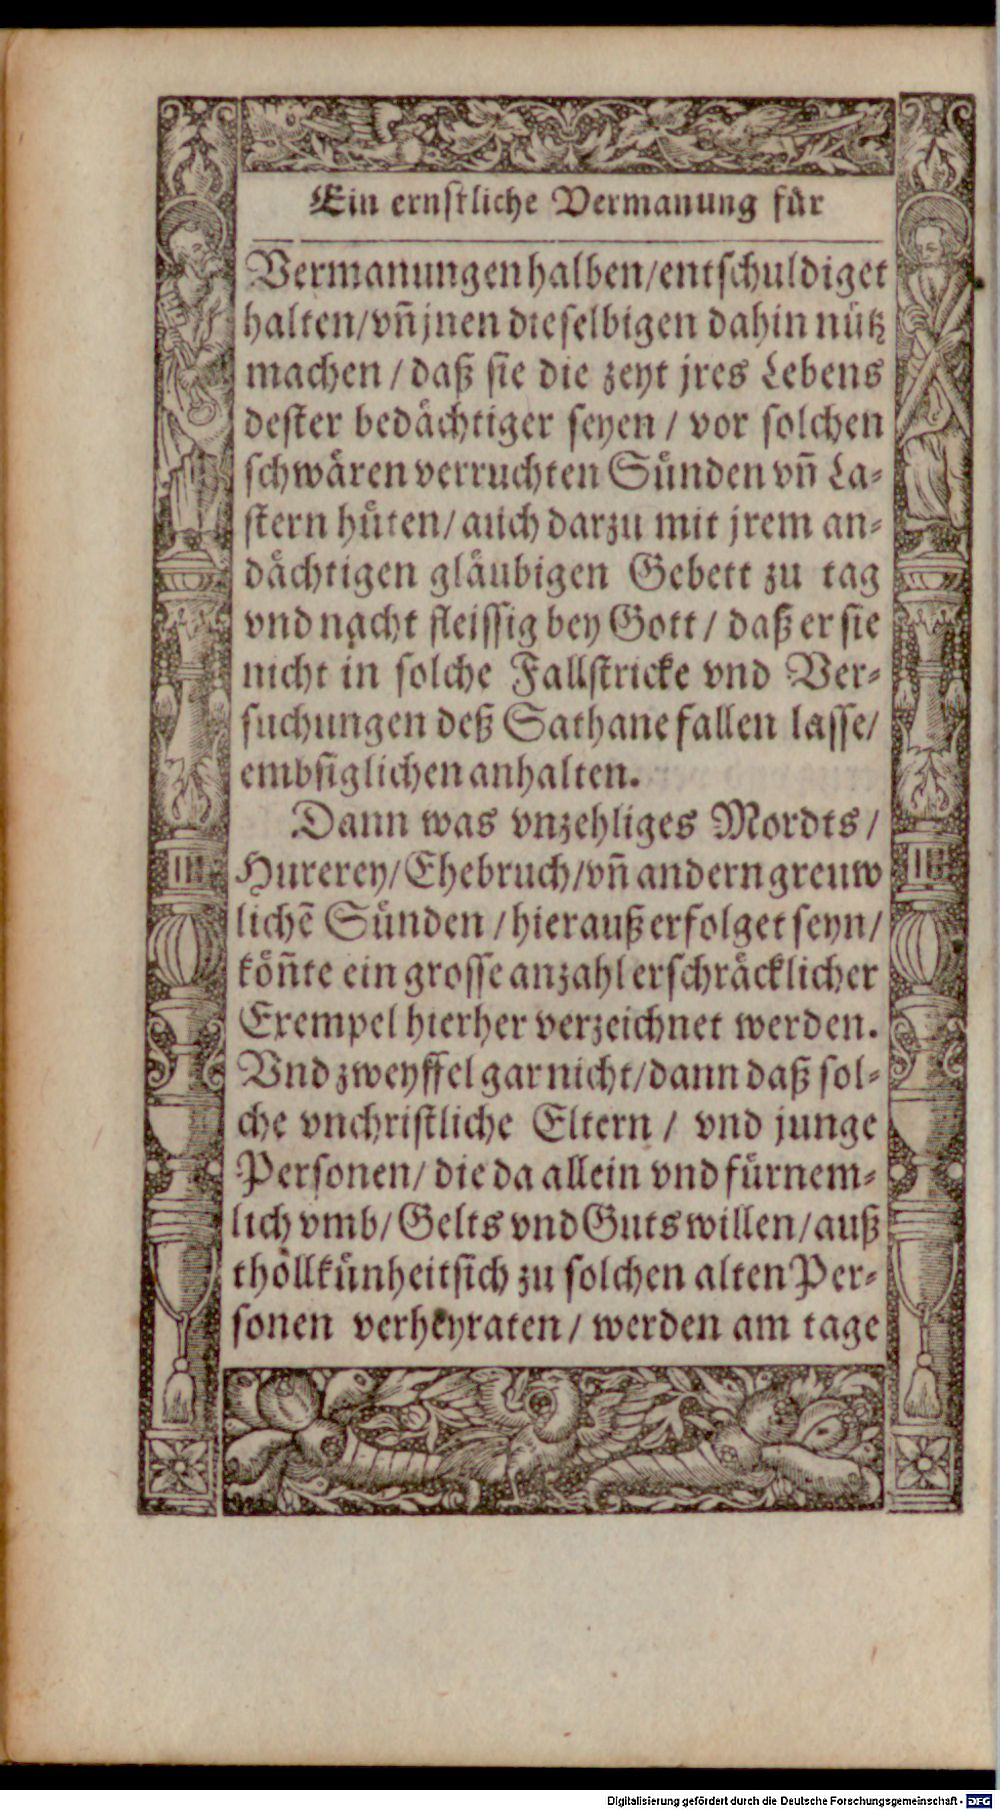 Ein ernstliche Vermanung für
Vermanungen halben/entschuldiget
halten/vñ jnen dieselbigen dahin nütz
machen / daß sie die zeyt jres Lebens
dester bedächtiger seyen / vor solchen
schwären verruchten Sünden vñ La⸗
stern hüten/ auch darzu mit jrem an⸗
dächtigen gläubigen Gebett zu tag
vnd nacht fleissig bey Gott / daß er sie
nicht in solche Fallstricke vnd Ver⸗
suchungen deß Sathane fallen lasse/
embsiglichen anhalten.
Dann was vnzehliges Mordts /
Hurerey/Ehebruch/vñ andern greuw
lichẽ Sünden / hierauß erfolget seyn/
köñte ein grosse anzahl erschräcklicher
Exempel hierher verzeichnet werden.
Vnd zweyffel gar nicht/dann daß sol⸗
che vnchristliche Eltern / vnd junge
Personen/ die da allein vnd fürnem⸗
lich vmb/ Gelts vnd Guts willen/auß
thöllkünheit sich zu solchen alten Per⸗
sonen verheyraten / werden am tage
Digitalisierung gefördert durch die Deutsche Forschungsgemeinschaft - DFG